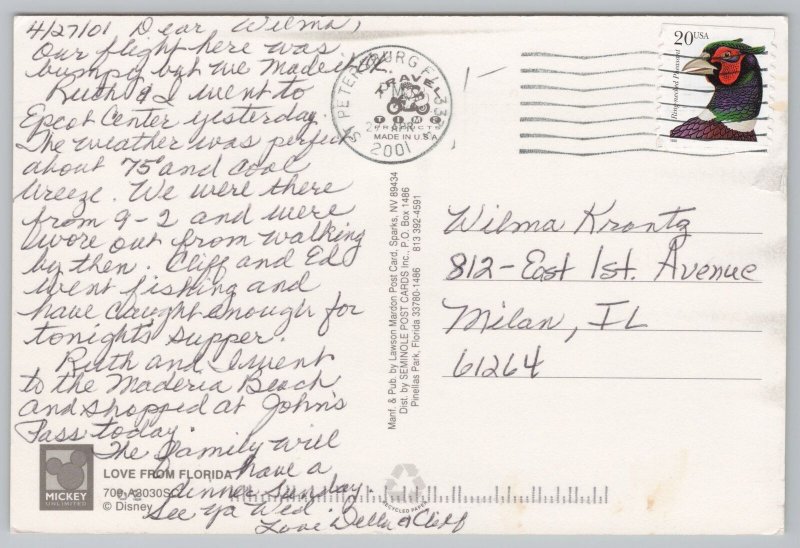 4/27/01 Dear Wilma,
Our flight here was
bumpy but we made it OK
Ruth & I went to
Epcot Center yesterday.
The weather was perfect
about 75° and cool
breeze. We were there
from 9-2 and were
wore out from walking
by then. Cliff and Ed
went fishing and
have caught enough for
tonight's supper.
Ruth and I went
to the Maderia Beach
and shopped at John's
Pass today.
The family will
have a
dinner Sunday.
See ya Wed.
Love Della & Cliff
MICKEY
UNLIMITED
LOVE FROM FLORIDA
700-A2030S
© Disney
Manf. & Pub. by Lawson Mardon Post Card, Sparks, NV 89434
Dist. by SEMINOLE POST CARDS Inc., P.O. Box 1486
Pinellas Park, Florida 33780-1486 813 392-4591
ST PETERSBURG FL
TRAVEL
TIME
PRODUCTS
MADE IN U.S.A.
APR
2001
20 USA
Ring-necked Pheasant
Wilma Krantz
812-East 1st. Avenue
Milan, IL
61264
RECYCLED PAPER